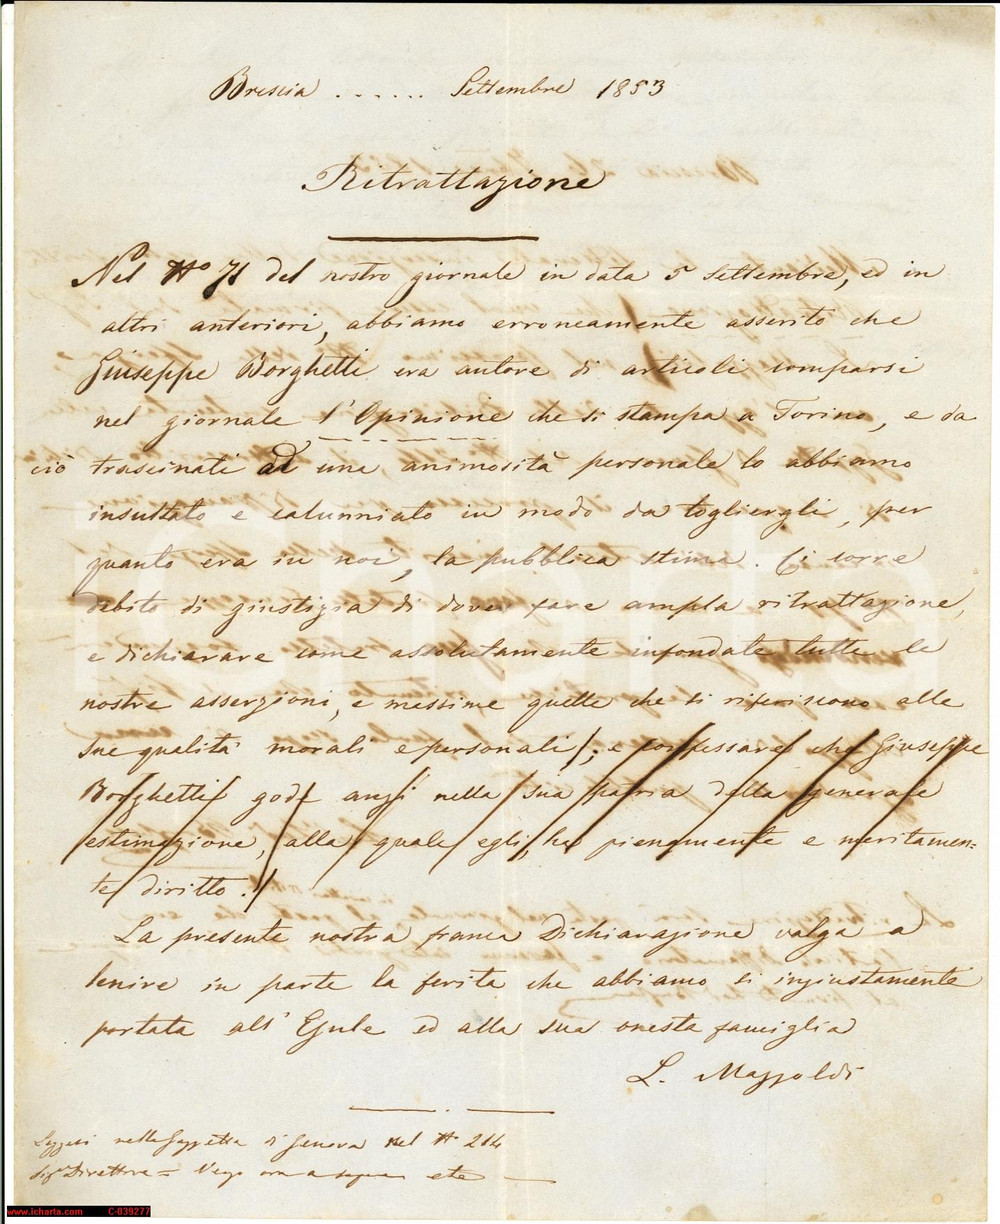 Brescia ...... Settembre 1853
Ritrattazione
Nel No 71 del nostro giornale in data 5 Settembre, ed in
altri anteriori, abbiamo erroneamente asserito che
Giuseppe Borghetti era autore di articoli comparsi
nel giornale l'Opinione che si stampa a Torino, e da
ciò trascinati ad una animosità personale lo abbiamo
insultato e calunniato in modo da togliergli, per
quanto era in noi, la pubblica stima. Ci corre
debito di giustizia di dover fare ampla ritrattazione,
e dichiarare come assolutamente infondate tutte le
nostre asserzioni, e messime quelle che si riferiscono alle
sue qualità morali e personali; e confessare che Giuseppe
Borghetti gode anzi nella sua patria della generale
estimazione, alla quale egli ha pienamente e meritamen=
te diritto.
La presente nostra franca Dichiarazione valga a
lenire in parte la ferita che abbiamo si ingiustamente
portata all' Esule ed alla sua onesta famiglia
L. Mazzoldi
Leggesi nella Gazzetta di Genova nel No 214
Sigr Direttore =
etc
iCharta
www.icharta.com C-039277